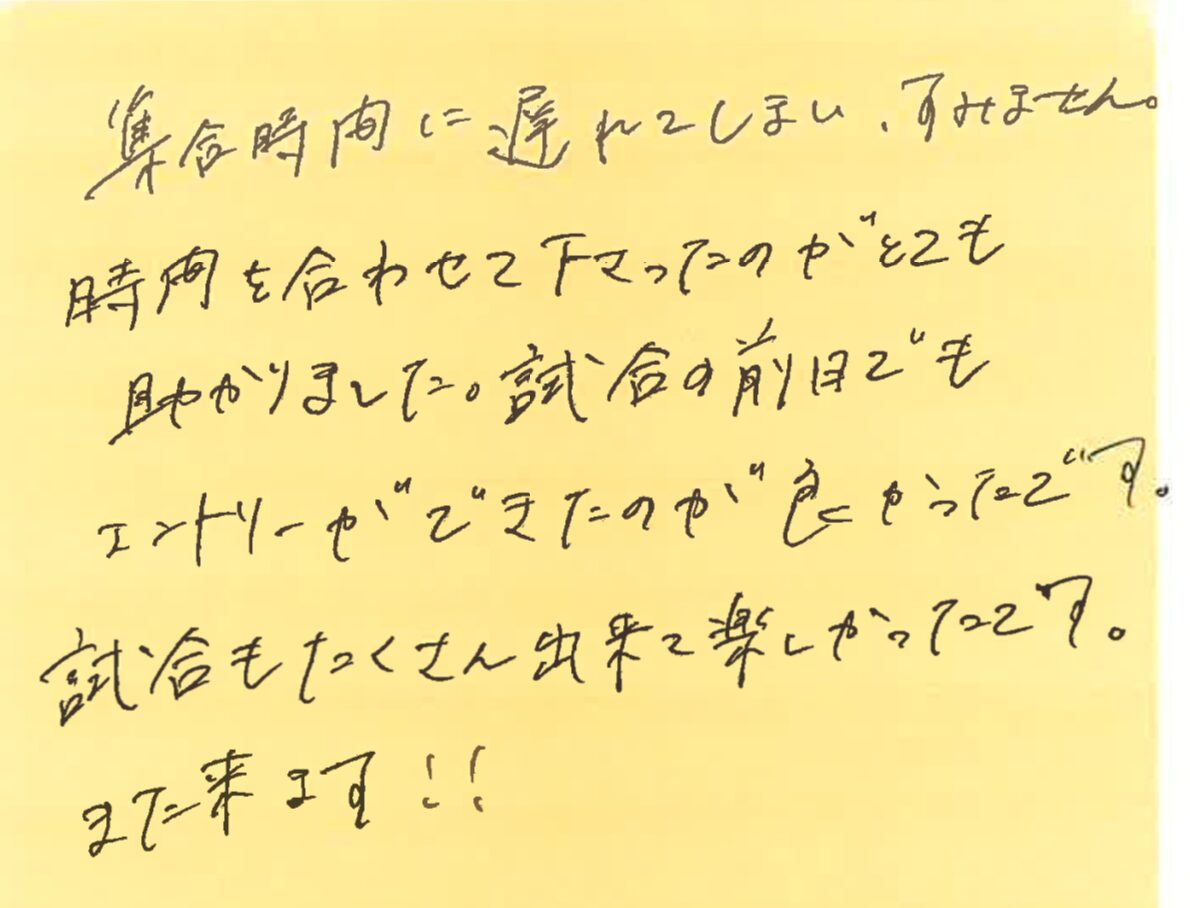 集合時間に遅れてしまい、すみません。
時間を合わせて下さったのがとても
助かりました。試合の前日でも
エントリーができたのが良かったです。
試合もたくさん出来て楽しかったです。
また来ます!!